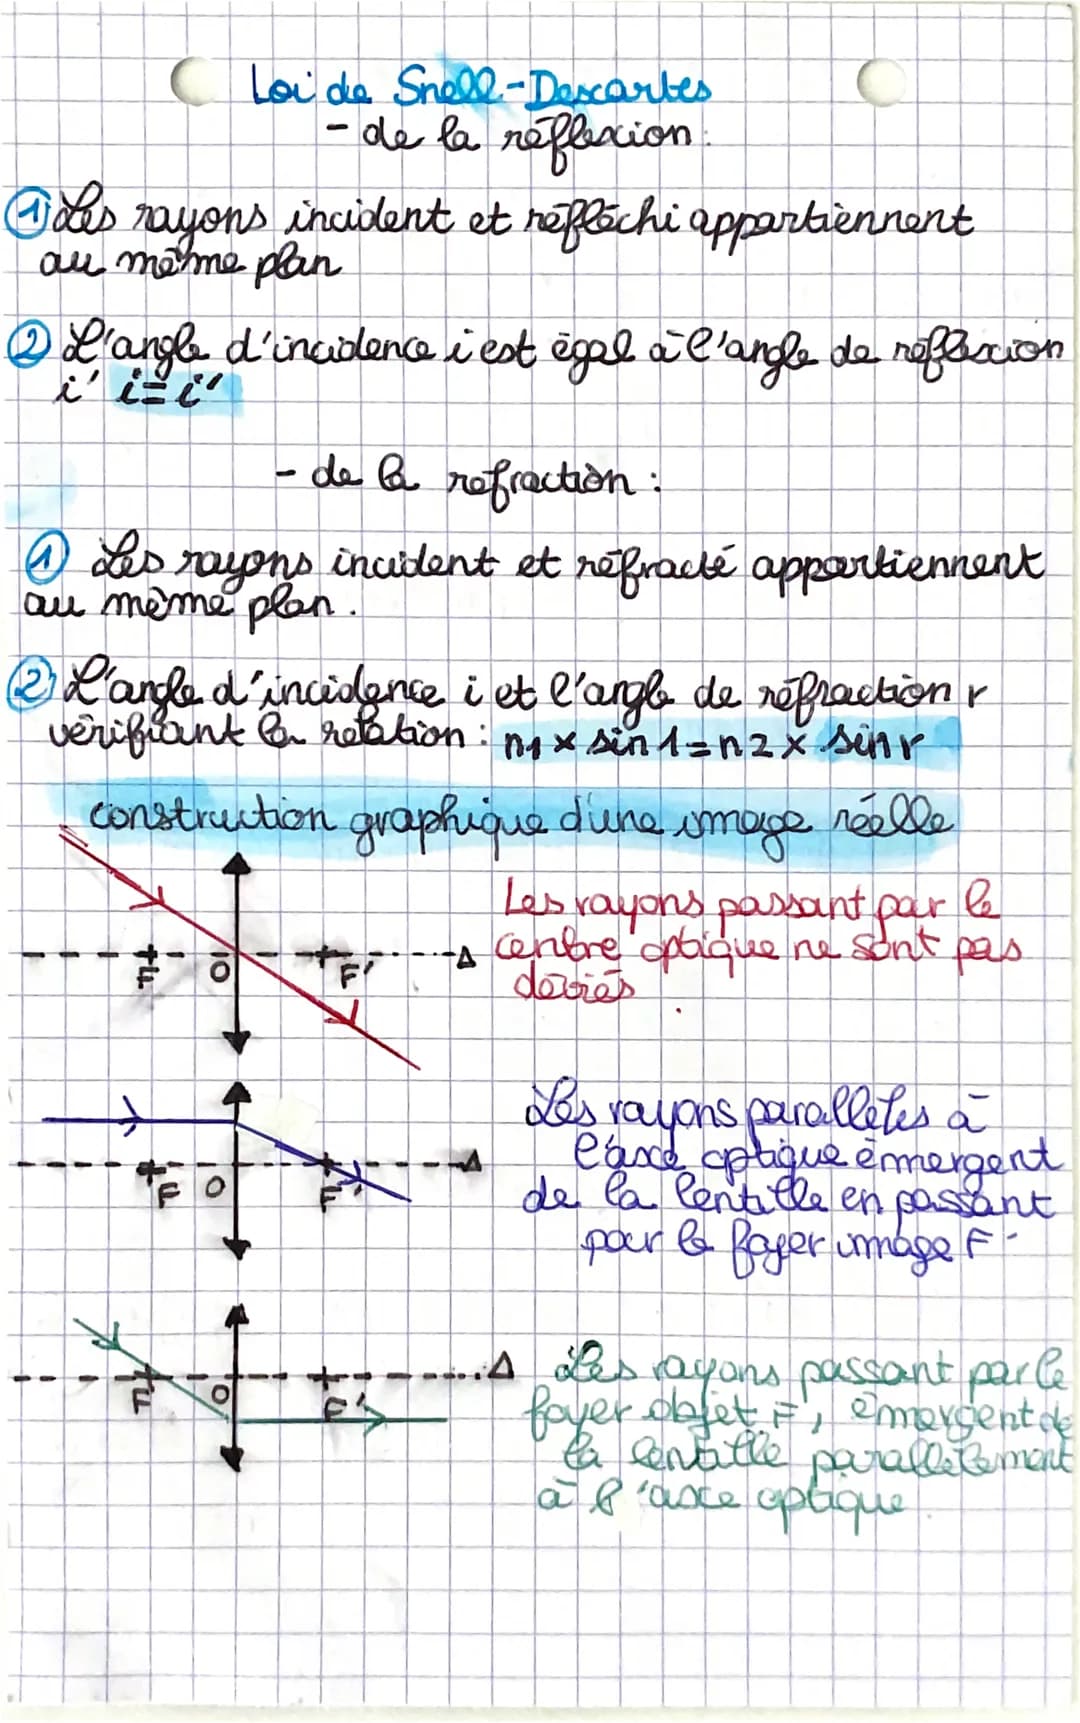 Loi de Snell-Descartes
- de la réflexion :
① Les rayons incident et réfléchi appartiennent
au même plan
② L'angle d'incidence i est égal à l'angle de réflexion
i' i=i'
- de la réfraction :
① Les rayons incident et réfracté appartiennent
au même plan.
② L'angle d'incidence i et l'angle de réfraction r
vérifiant la relation : n1 x sin 1 = n2 x sin r
construction graphique d'une image réelle
Les rayons passant par le
centre optique ne sont pas
déviés
F O F' Δ
Les rayons parallèles à
l'axe optique émergent
de la lentille en passant
par le foyer image F'
F O F' Δ
Les rayons passant par le
foyer objet F', émergent de
la lentille parallèlement
à l'axe optique
F O F' Δ